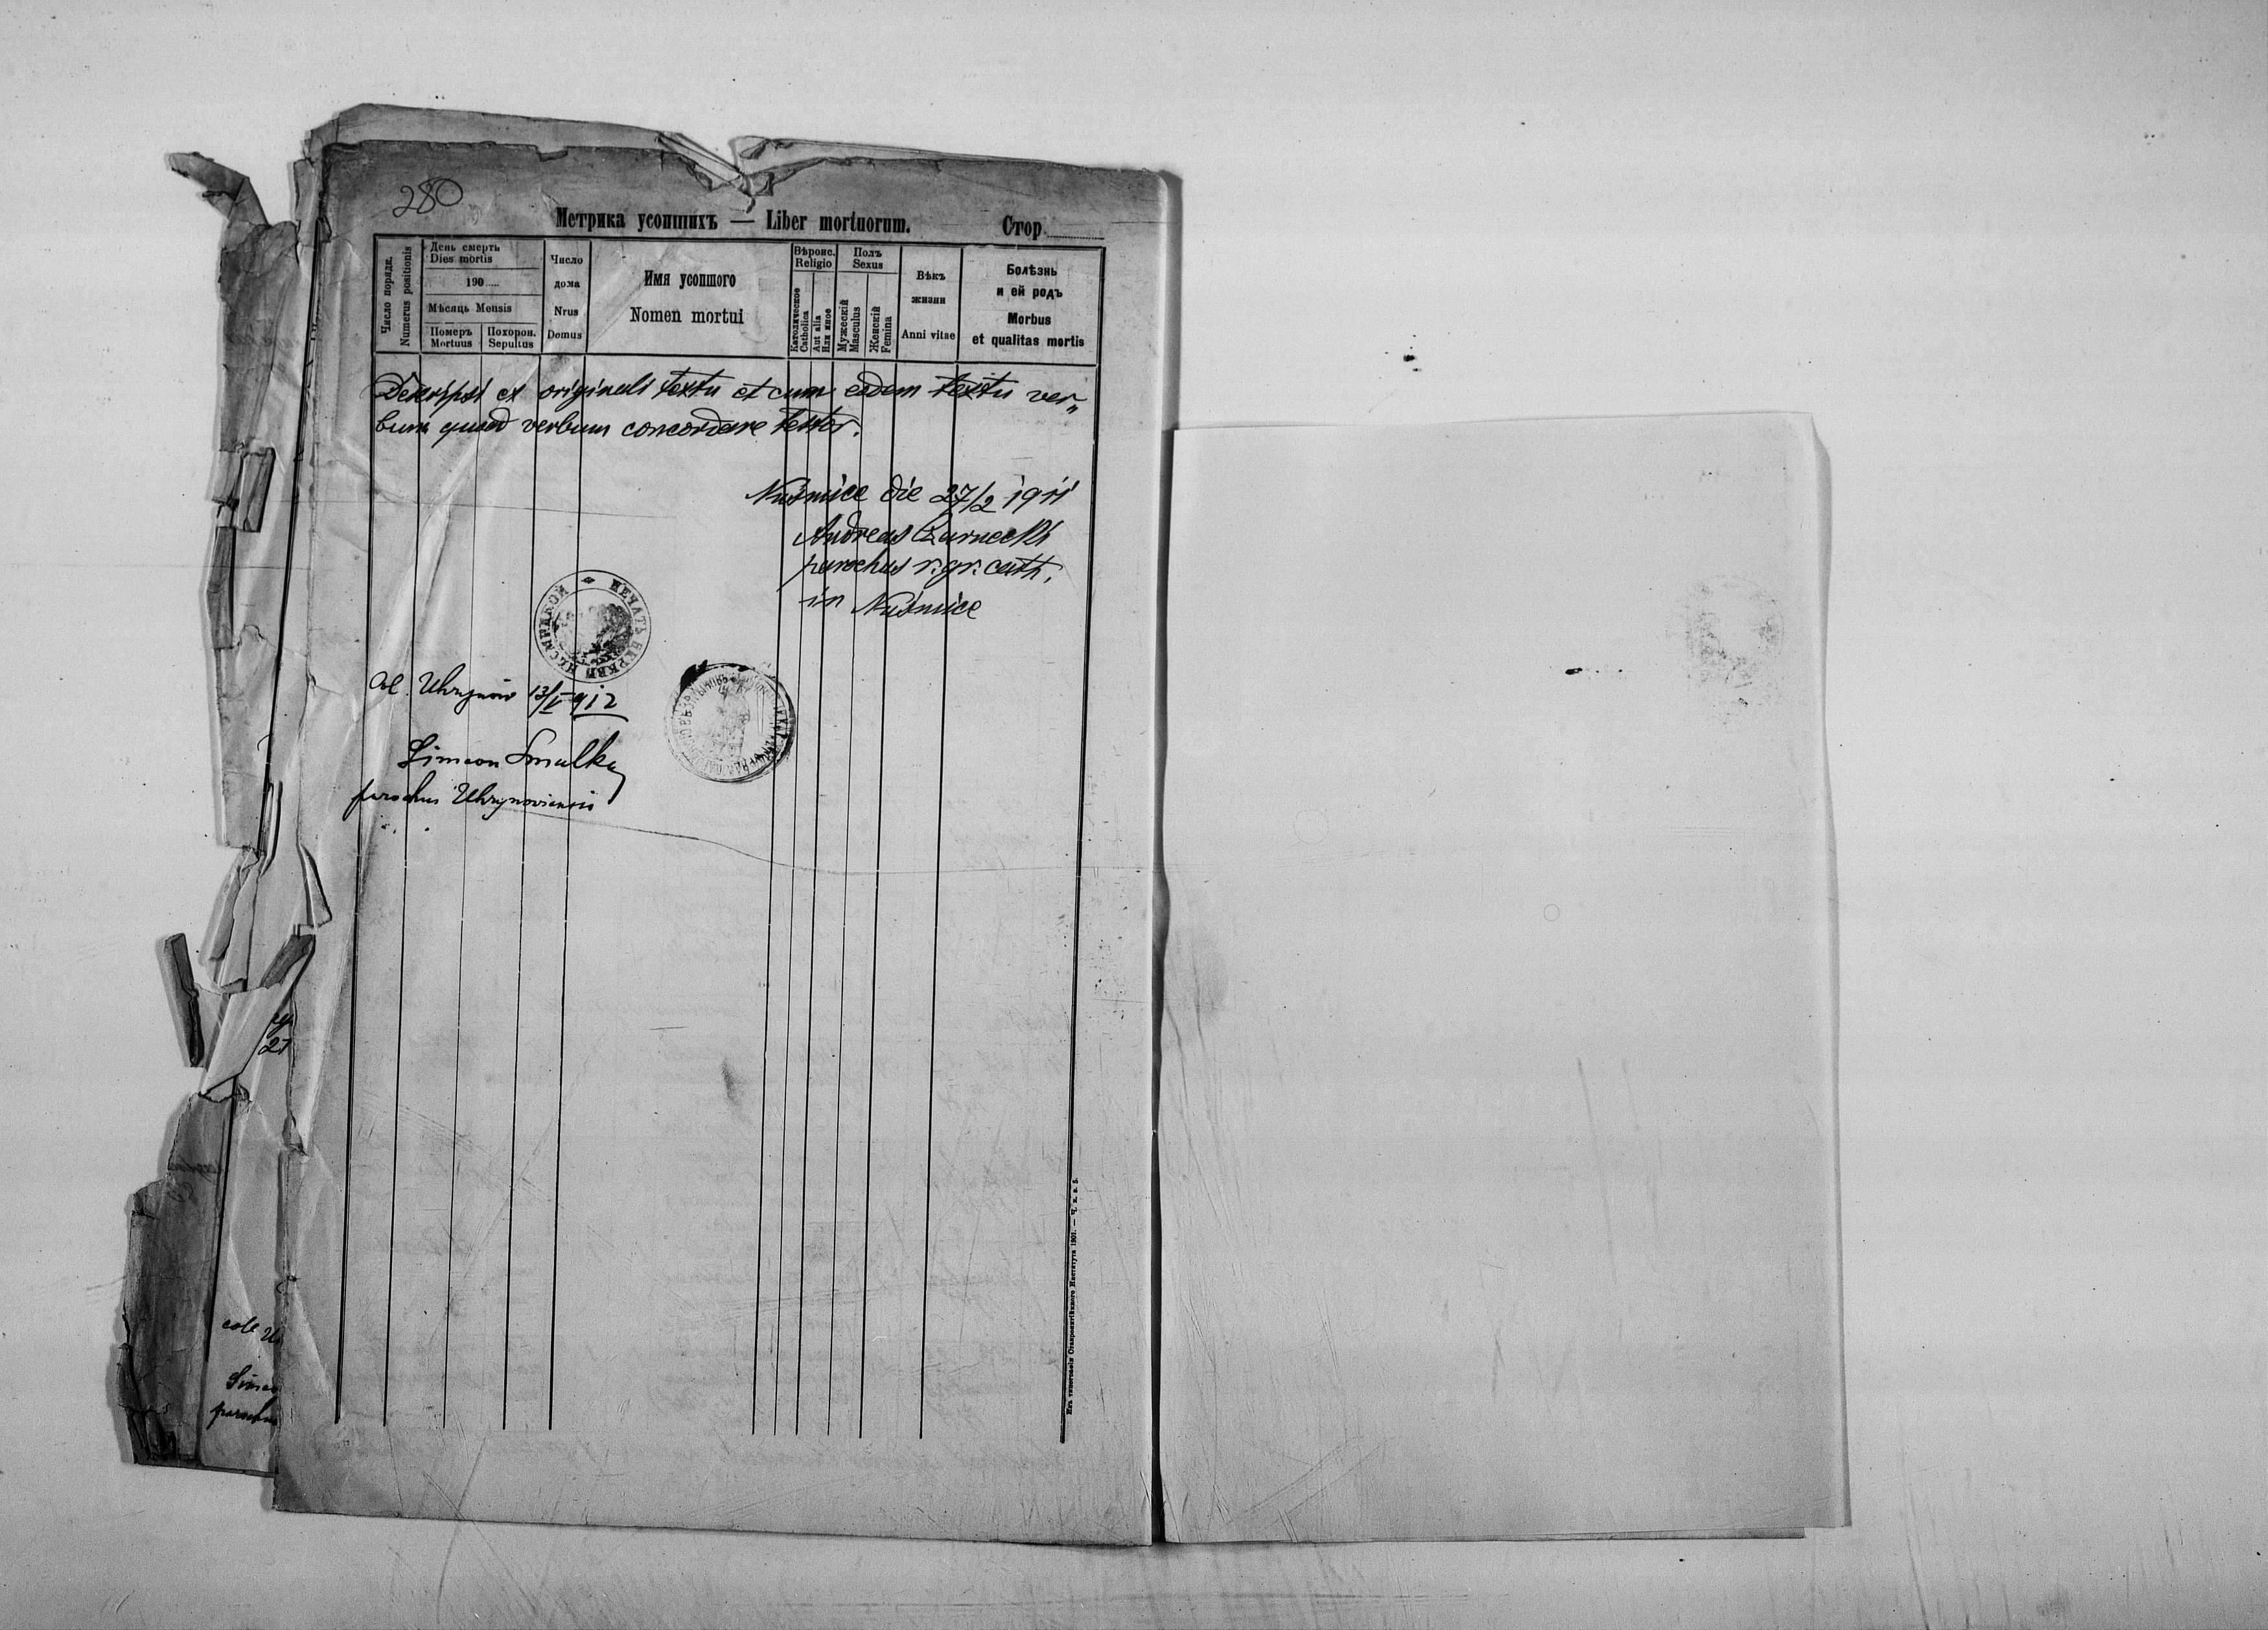 280
Метрика усопшихъ — Liber mortuorum. Стор
Число порядк.
Numerus positionis
День смерть
Dies mortis
190
Мѣсяць Mensis
Померъ
Mortuus
Похорон.
Sepultus
Число
дома
Nrus
Domus
Имя усопшого
Nomen mortui
Вѣроис.
Religio
Католическое
Catholica
Aut alia
Или иное
Полъ
Sexus
Мужескій
Masculus
Женскій
Femina
Вѣкъ
жизни
Anni vitae
Болѣзнь
и ей родъ
Morbus
et qualitas mortis
Descripsi ex originali textu et cum eodem textu ver„
bum quod verbum concordare testor.
Nuśmice die 27/2 1911
Andreas Czarnecki
parochus r. gr. cath.
in Nuśmice
ПЕЧАТЬ ЦЕРКВИ
Uhrynów 13/V 912
Simeon Smulka
parochus Uhrynoviensis
21
Simeo
paroch
Изъ типографіи Ставропигійского Института 1901. — Ч. к. в. 5.